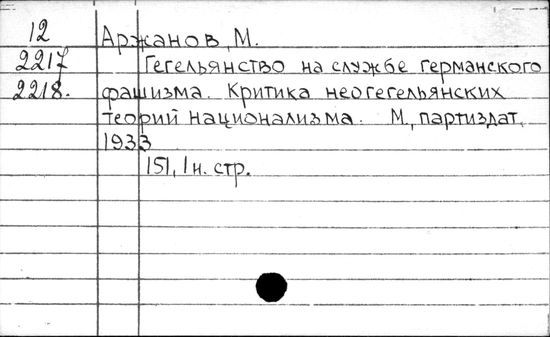 12 Аржанов, М.
2217 Гегельянство на службе германского
2218. фашизма. Критика неогегельянских
теорий национализма. М, партиздат,
1933
151, 1 н. стр.